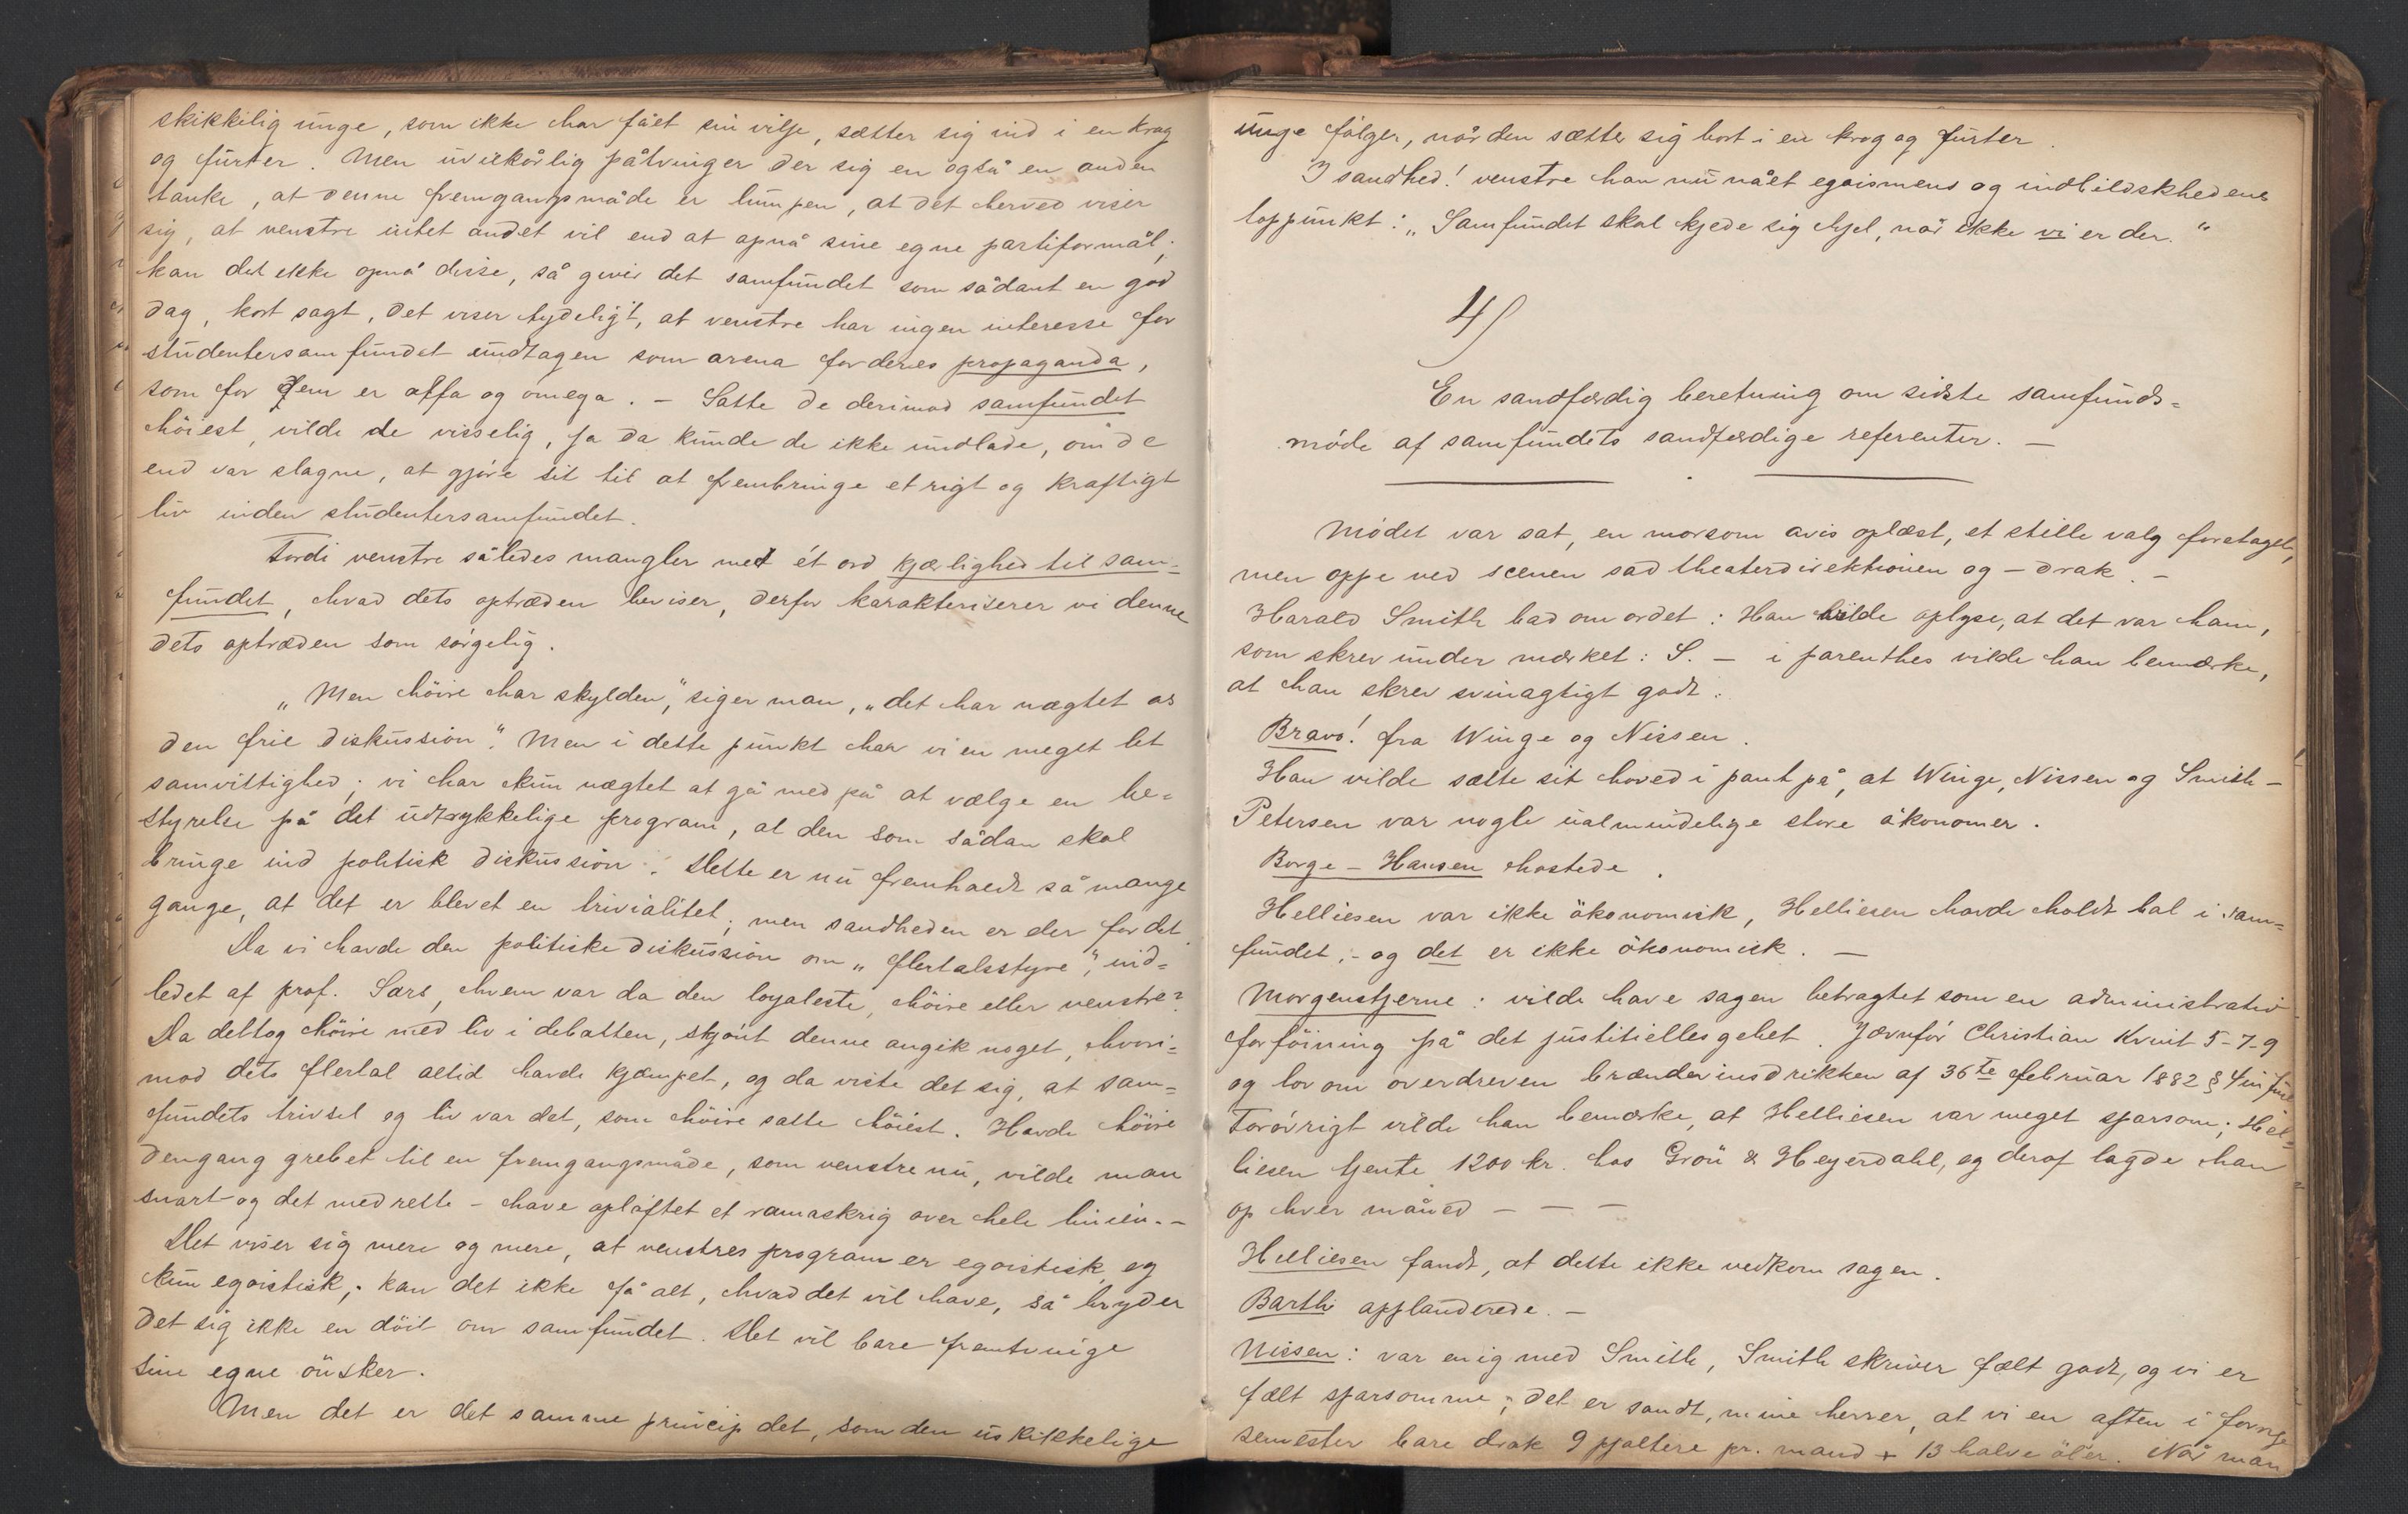 skikkelig unge, som ikke har fået sin vilje, sætter sig ind i en krog
og furter. Men uvilkårlig påtvinger der sig en også en anden
tanke, at denne fremgangsmåde er lumpen, at det herved viser
sig, at venstre intet andet vil end at opnå sine egne partiformål;
kan det ikke opnå disse, så giver det samfundet som sådant en god
dag, kort sagt, det viser tydeligt, at venstre har ingen interesse for
studentersamfundet undtagen som arena for deres propaganda,
som for dem er alfa og omega. – Satte de derimod samfundet
höiest, vilde de visselig, ja da kunde de ikke undlade, om de
end var slagne, at gjöre sit til at frembringe et rigt og kraftigt
liv inden studentersamfundet.
Fordi venstre således mangler med ét ord kjærlighed til sam=
fundet, hvad dets optræden beviser, derfor karakteriserer vi denne
dets optræden som sörgelig.
„Men höire har skylden," siger man, „det har nægtet os
den frie diskussion". Men i dette punkt har vi en meget let
samvittighed; vi har kun nægtet at gå med på at vælge en be=
styrelse på det udtrykkelige program, at den som sådan skal
bringe ind politisk diskussion. Dette er nu fremhævet så mange
gange, at det er blevet en trivialitet; men sandheden er der for det.
Da vi havde den politiske diskussion om „flertalsstyre", ind=
ledet af prof. Sars, hvem var da den loyaleste, höire eller venstre?
Da deltog höire med liv i debatten, skjönt denne angik noget, hvori=
mod dets flertal altid havde kjæmpet, og da viste det sig, at sam=
fundets trivsel og liv var det, som höire satte höiest. Havde höire
dengang grebet til en fremgangsmåde, som venstre nu, vilde man
snart – og det med rette – have oplöftet et ramaskrig over hele linien. –
Det viser sig mere og mere, at venstres program er egoistisk og
kun egoistisk; kan det ikke få alt, hvad det vil have, så bryder
det sig ikke en döit om samfundet. Det vil bare fremtvinge
sine egne önsker.
Men det er det samme princip det, som den uskikkelige
unge fölger, når den sætter sig bort i en krog og furter.
I sandhed! venstre har nu nået egoismens og indbildskhedens
toppunkt: „Samfundet skal kjede sig ihjel, når ikke vi er der."
4)
En sandfærdig beretning om sidste samfunds=
möde af samfundets sandfærdige referenter. –
Mödet var sat, en morsom avis oplæst, et stille valg foretaget,
men oppe ved scenen sad theaterdirektionen og – drak. –
Harald Smith bad om ordet: Han vilde oplyse, at det var ham,
som skrev under mærket: S. – i parenthes vilde han bemærke,
at han skrev svinagtigt godt.
Bravo! fra Winge og Nissen.
Han vilde sætte sit hoved i pant på, at Winge, Nissen og Smith–
Petersen var nogle ualmindelige store ökonomer.
Borge – Hansen hostede.
Helliesen var ikke ökonomisk, Helliesen havde holdt bal i sam=
fundet; – og det er ikke ökonomisk. –
Morgenstjerne: vilde have sagen betragtet som en administrativ
forföining på det justitielles gebet. Jævnför Christian Kvint 5-7-9
og lov om overdreven brændevinsdrikken af 36te februar 1882 § 4 in fine
Forövrigt vilde han bemærke, at Helliesen var meget sparsom; Hel=
liesen tjente 1200 kr. hos Grön & Heyerdahl, og deraf lagde han
op hver måned – – –
Helliesen fandt, at dette ikke vedkom sagen.
Barth applauderede. –
Nissen: var enig med Smith, Smith skriver fælt godt, og vi er
fælt sparsomme; det er sandt, mine herrer, at vi en aften i forrige
semester bare drak 9 pjoltere pr. mand + 13 halve öl'er. Når man